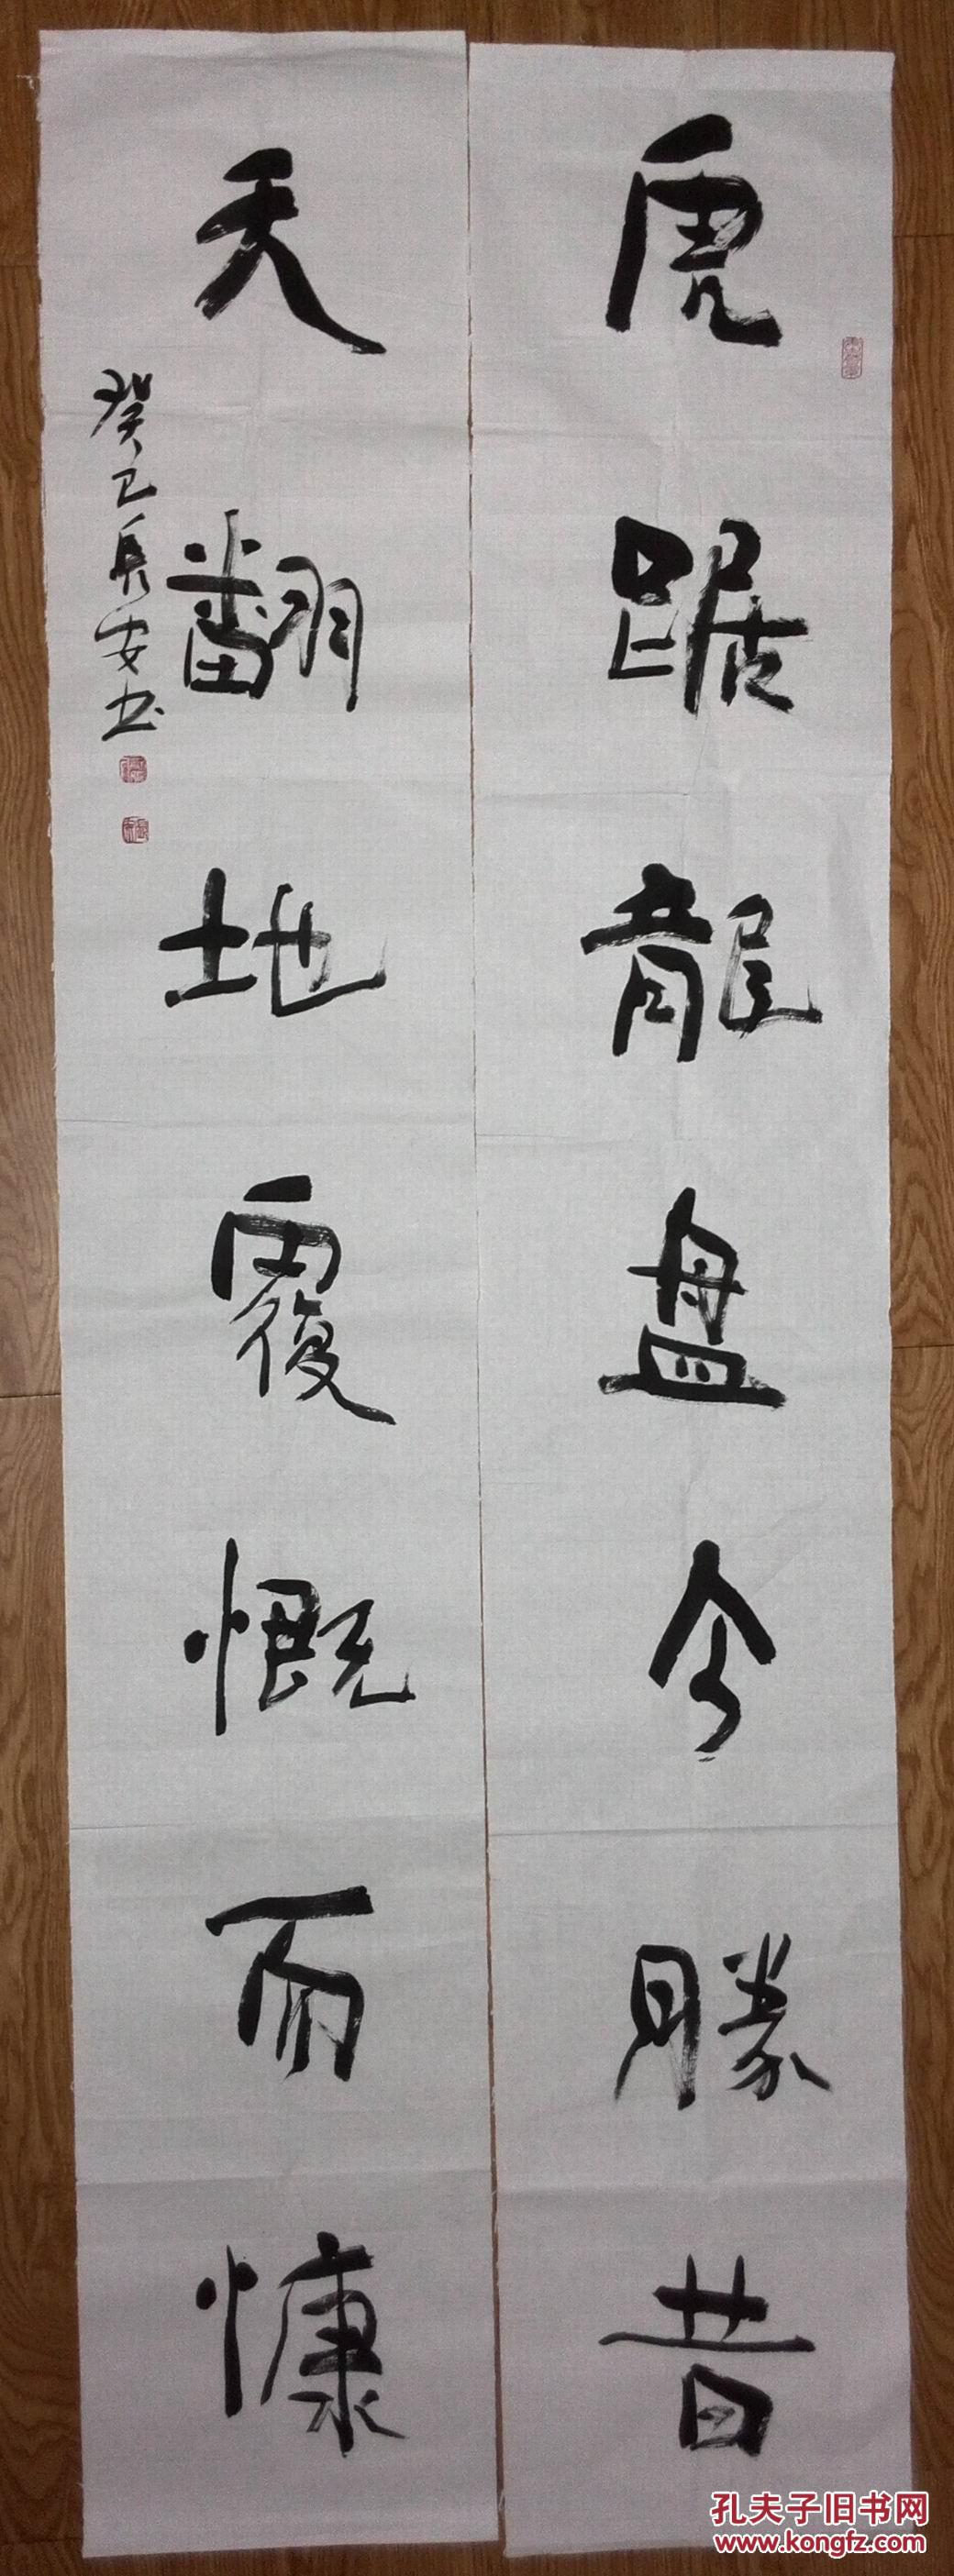 虎踞龍盘今勝昔
天翻地覆慨而慷
癸巳長安书
孔夫子旧书网
www.kongfz.com